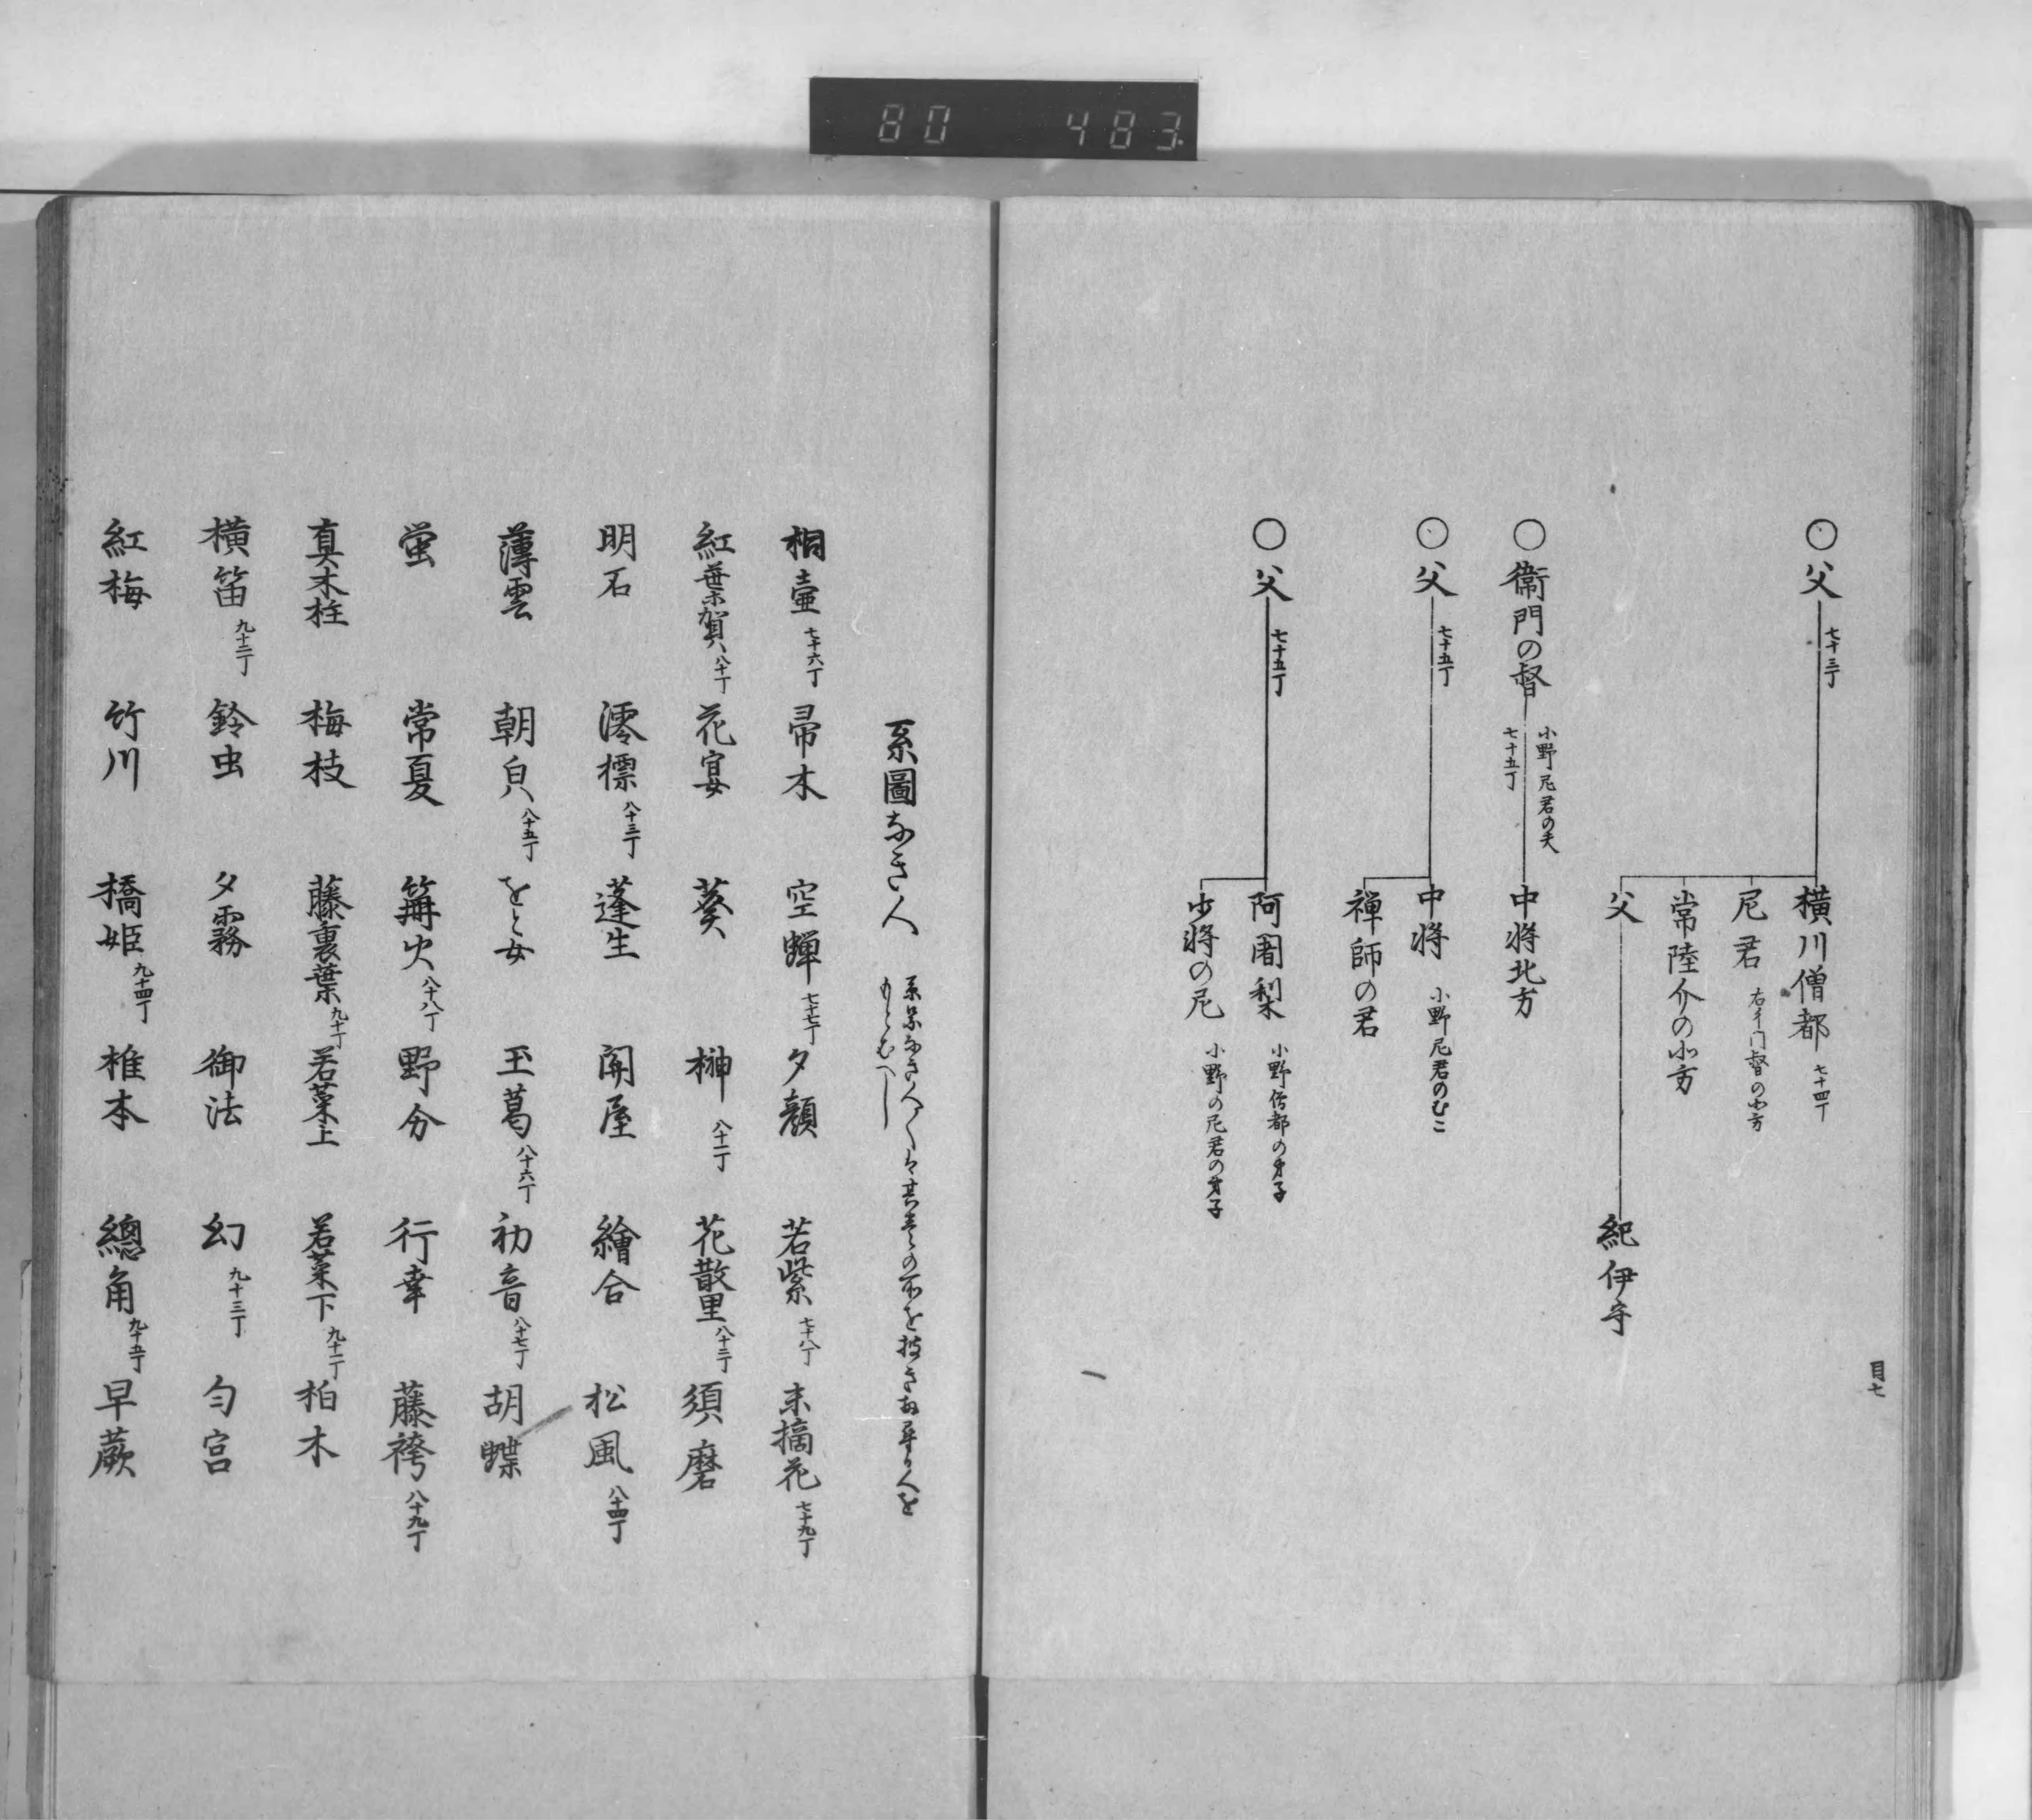 80 483
○父 七十三丁
横川僧都 七十四丁
尼君 右衛門督の北方
常陸介の北方
父
紀伊守
○衞門の督 小野尼君の夫 七十五丁
中将北方
○父 七十五丁
中将 小野尼君のむこ
禅師の君
○父 七十五丁
阿闍梨 小野僧都の弟子
少将の尼 小野の尼君の弟子
目七
系圖なき人
桐壷 七十六丁 帚木 空蝉 七十七丁 夕顔 若紫 七十八丁 末摘花 七十九丁
紅葉賀 八十丁 花宴 葵 榊 八十一丁 花散里 八十二丁 須磨
明石 澪標 八十三丁 蓬生 関屋 繪合 松風 八十四丁
薄雲 朝皃 八十五丁 をと女 玉葛 八十六丁 初音 八十七丁 胡蝶
蛍 常夏 篝火 八十八丁 野分 行幸 藤袴 八十九丁
真木柱 梅枝 藤裏葉 九十丁 若菜上 若菜下 九十一丁 柏木
横笛 九十二丁 鈴虫 夕霧 御法 幻 九十三丁 匂宮
紅梅 竹川 橋姫 九十四丁 椎本 總角 九十五丁 早蕨